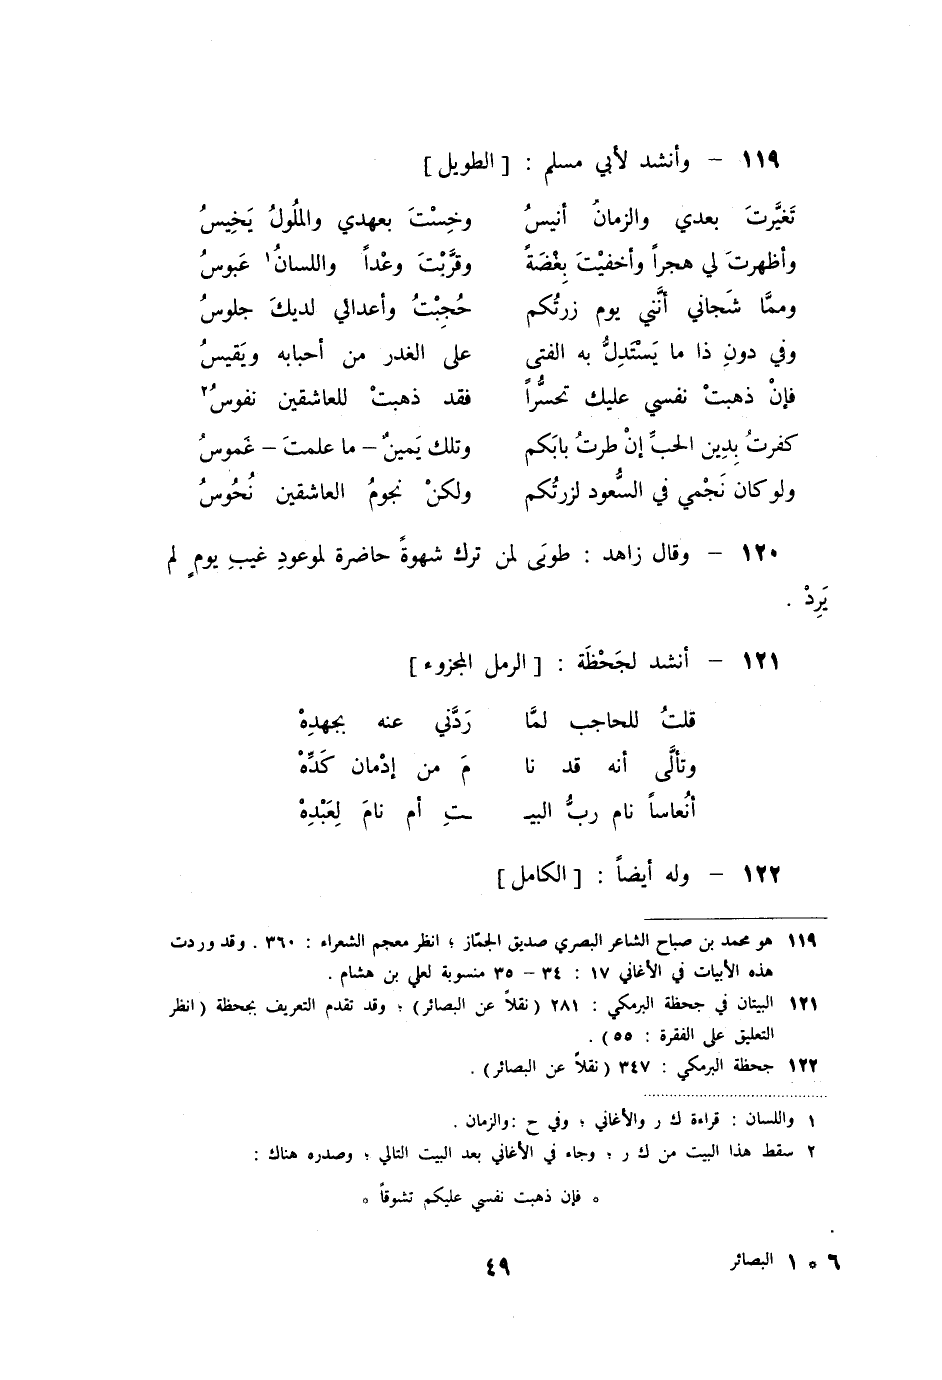 ١١٩ – وأنشد لأبي مسلم : [ الطويل ]
تَغيَّرتَ بعدي والزمانُ أنيسُ وخِسْتَ بعهدي والمَلُولُ يَخِيسُ
وأظهرتَ لي هجراً وأخفيْتَ بِغْضَةً وقرَّبْتَ وعْداً واللسانُ١ عَبوسُ
وممَّا شَجاني أنَّني يوم زرتُكم حُجِبْتُ وأعدائي لديكَ جلوسُ
وفي دونِ ذا ما يَسْتَدِلُّ به الفتى على الغدر من أحبابه ويَقيسُ
فإنْ ذهبتْ نفسي عليك تحسُّراً فقد ذهبتْ للعاشقين نفوسُ٢
كفرتُ بِدِين الحبِّ إنْ طرتُ بابَكم وتلك يَمينٌ – ما علمتَ – غَموسُ
ولو كان نَجْمي في السُّعود لزرتُكم ولكنْ نجومُ العاشقين نُحُوسُ
١٢٠ – وقال زاهد : طوبَى لمن ترك شهوةً حاضرة لموعودِ غيبِ يومٍ لم
يَرِدْ .
١٢١ – أنشد لجَحْظَة : [ الرمل المجزوء ]
قلتُ للحاجب لمَّا رَدَّني عنه بجهدِهْ
وتألَّى أنه قد نا مَ من إدْمان كَدِّهْ
أنُعاساً نام ربُّ البيـ ـتِ أم نامَ لِعَبْدِهْ
١٢٢ – وله أيضاً : [ الكامل ]
١١٩ هو محمد بن صباح الشاعر البصري صديق الجمّاز ؛ انظر معجم الشعراء : ٣٦٠ . وقد وردت
هذه الأبيات في الأغاني ١٧ : ٣٤ – ٣٥ منسوبة لعلي بن هشام .
١٢١ البيتان في جحظة البرمكي : ٢٨١ ( نقلاً عن البصائر ) ؛ وقد تقدم التعريف بجحظة ( انظر
التعليق على الفقرة : ٥٥ ) .
١٢٢ جحظة البرمكي : ٣٤٧ ( نقلاً عن البصائر ) .
١ واللسان : قراءة ك ر والأغاني ؛ وفي ح : والزمان .
٢ سقط هذا البيت من ك ر ؛ وجاء في الأغاني بعد البيت التالي ؛ وصدره هناك :
* فإن ذهبت نفسي عليكم تشوقاً *
٦ * ١ البصائر
٤٩